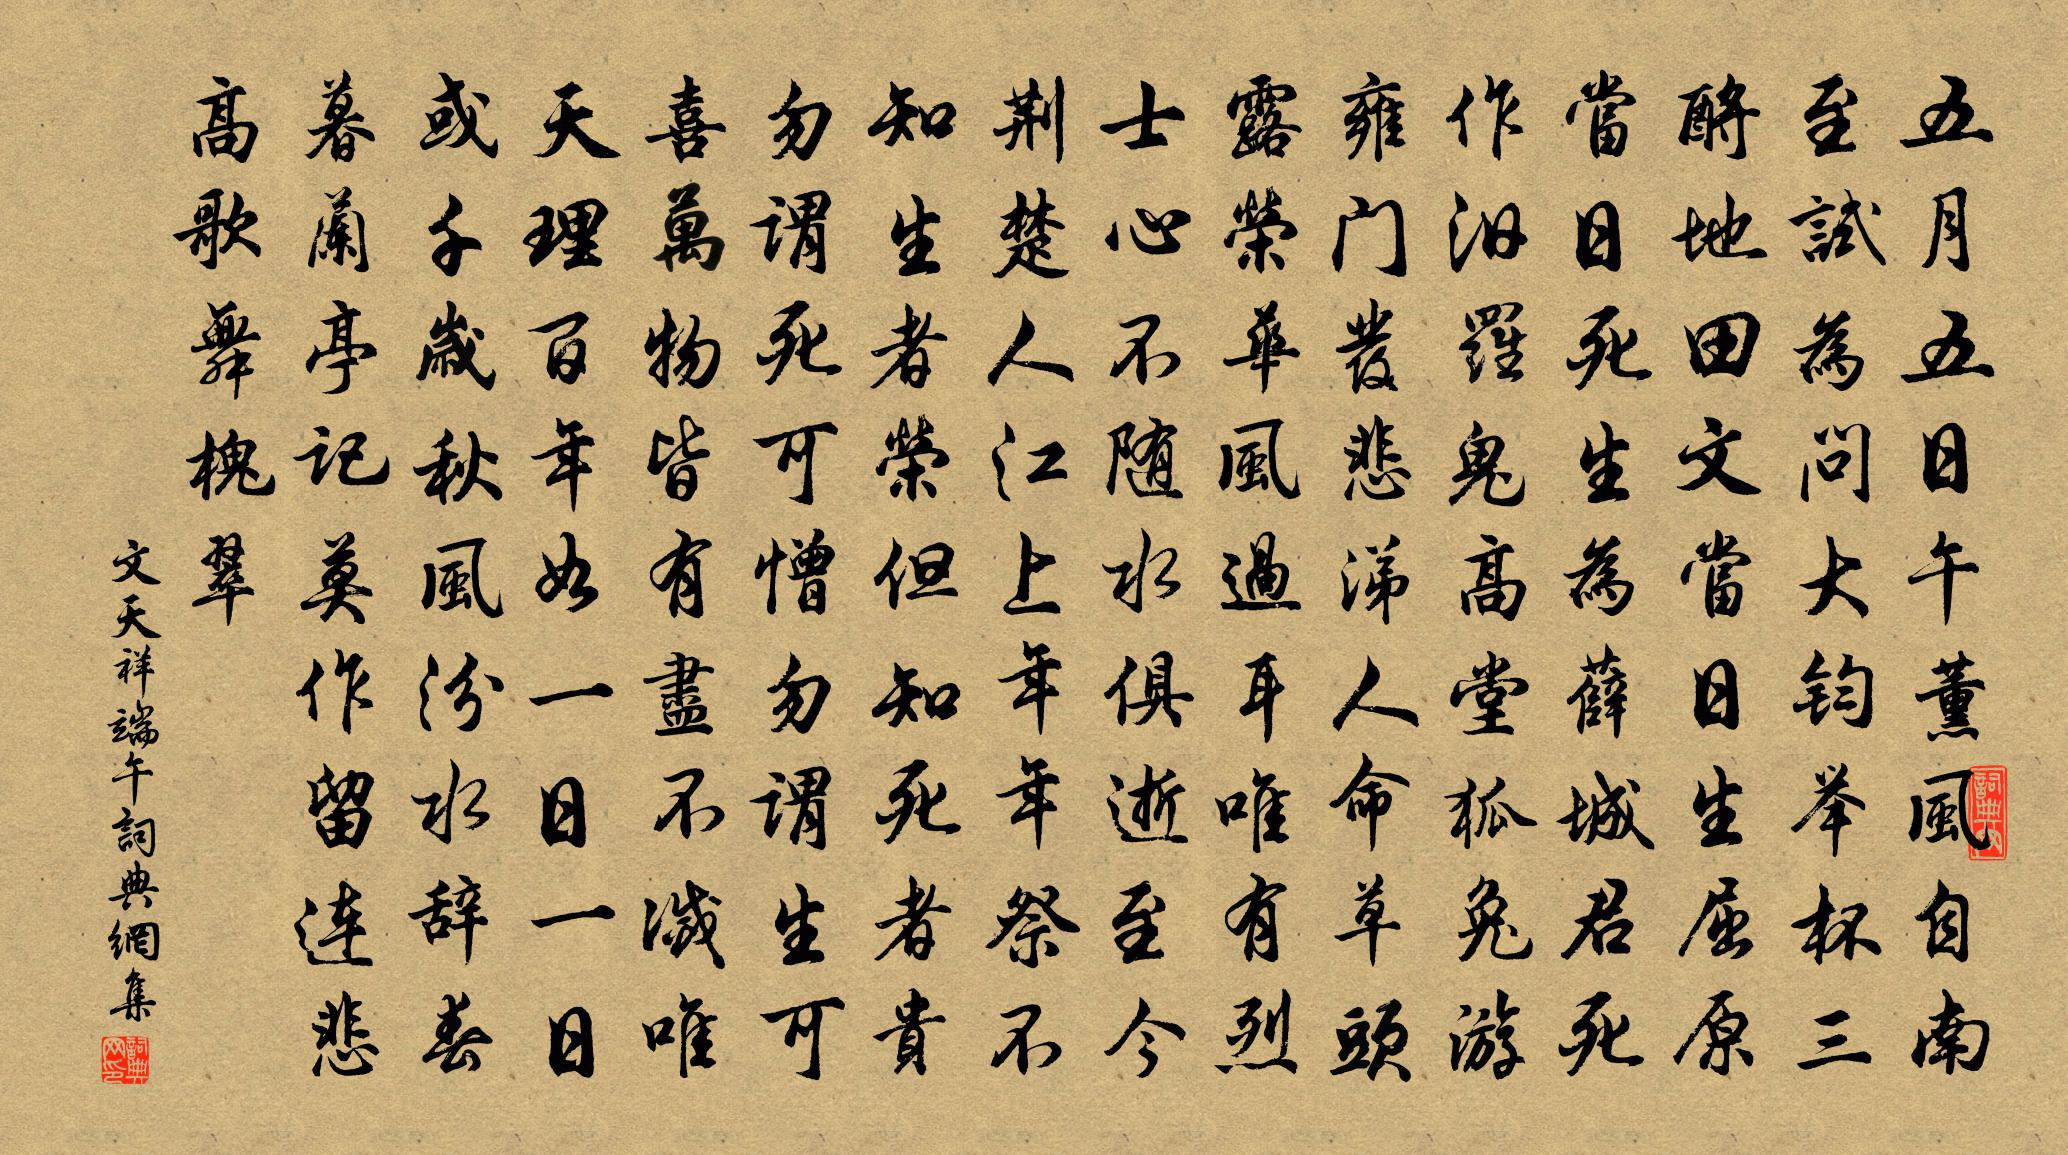 五月五日午薰風自南
至試為問大鈞举杯三
酹地田文當日生屈原
當日死生為薛城君死
作汨羅鬼高堂狐兔游
雍门發悲涕人命草頭
露榮華風過耳唯有烈
士心不随水俱逝至今
荆楚人江上年年祭不
知生者榮但知死者貴
勿謂死可憎勿謂生可
喜萬物皆有盡不滅唯
天理百年如一日一日
或千歲秋風汾水辞春
暮蘭亭記莫作留連悲
高歌舞槐翠
文天祥端午詞典網集
詞典
詞典网印